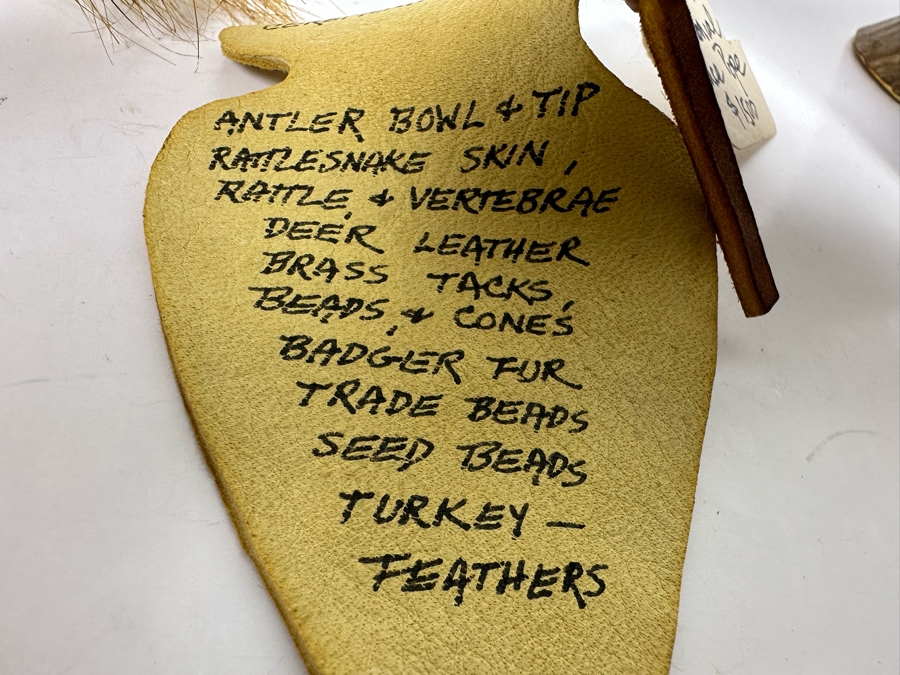 ANTLER BOWL & TIP
RATTLESNAKE SKIN,
RATTLE, & VERTEBRAE
DEER LEATHER
BRASS TACKS,
BEADS, & CONES
BADGER FUR
TRADE BEADS
SEED BEADS
TURKEY —
FEATHERS
Pipe